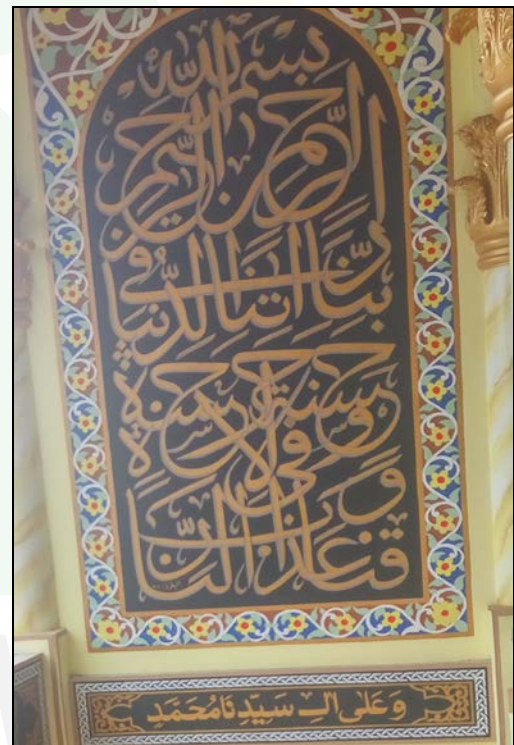 بسم الله
الرحمن الرحيم
ربنا آتنا في الدنيا
حسنة وفي الآخرة حسنة
وقنا عذاب النار
وَعَلَى الِ سَيِّدِنَا مُحَمَّدٍ